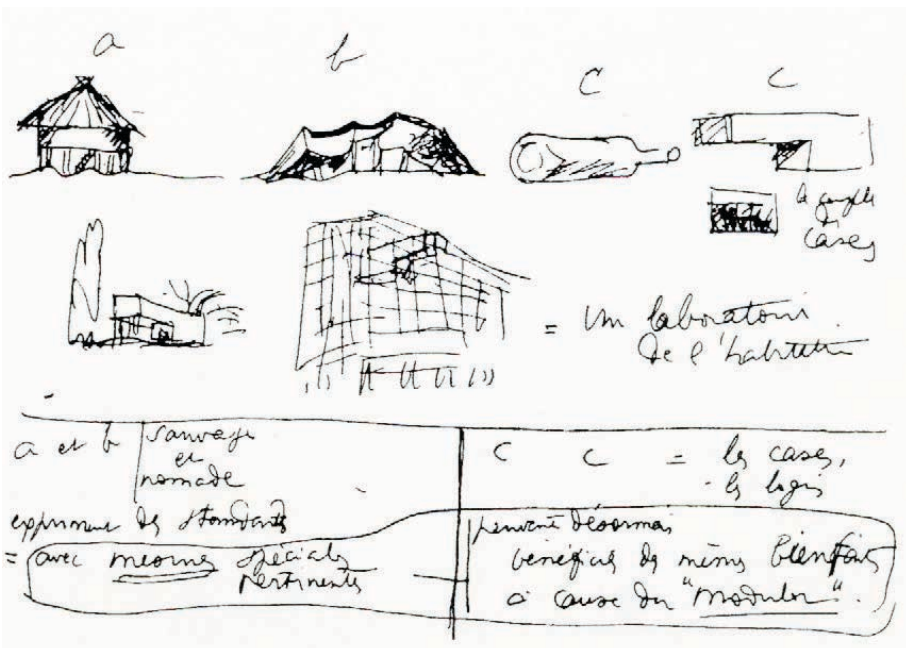 a
b
C
C
de
cases
= un laboratoire
de l'habitation
a et b sauvage
et
nomade
expriment des standards
= avec mesures spéciales
pertinentes
C C = les cases,
les logis
peuvent désormais
bénéficier des mêmes bienfaits
à cause du "Modulor".